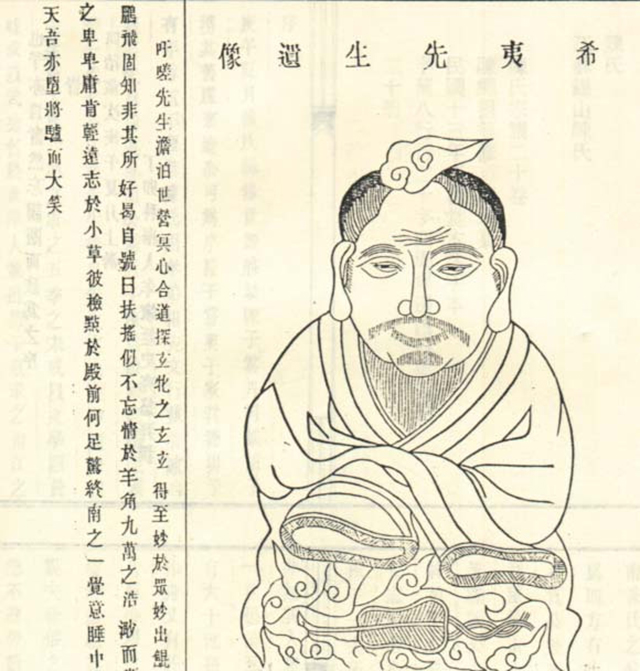 希夷先生遺像
呼嗟先生澹泊世營冥心合道探玄牝之玄玄 得至妙於眾妙出鯤
鵬飛固知非其所好曷自號曰扶搖似不忘情於羊角九萬之浩 渺而
之卑卑庸肯輕遠志於小草彼檢點於殿前何足驚終南之 覺意睡中
天吾亦墮將驢而大笑